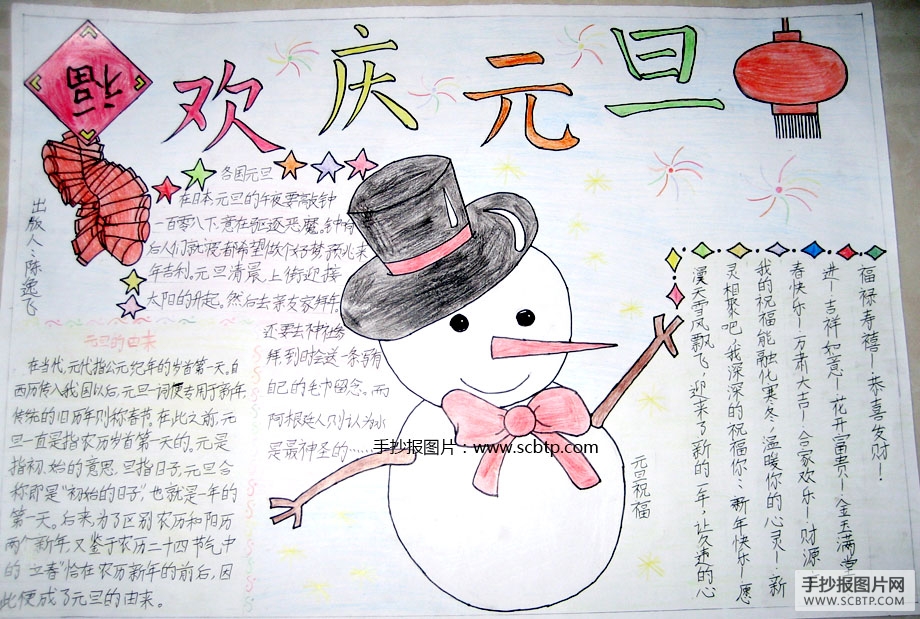 福
欢庆元旦
出版人：陈逸飞
各国元旦
在日本元旦的午夜要敲钟
一百零八下，意在驱逐恶魔。钟
后人们就
都希望做个好梦，预兆来
年吉利。元旦清晨上街迎接
太阳的升起。然后去亲友家拜年。
还要去神社参
拜，到时会送一条
自己的毛巾留念。而
阿根廷人则认为水
是最神圣的……
元旦的由来
在当代，元代指公元纪年的岁首第一天。自
西历传入我国以后，元旦一词便专用于新年，
传统的旧历年则称春节。在此之前，元
旦一直是指农历岁首第一天的。元是
指初、始的意思，旦指日子，元旦合
称即是“初始的日子”，也就是一年的
第一天。后来，为了区别农历和阳历
两个新年，又鉴于农历二十四节气中
的“立春”恰在农历新年的前后，因
此便成了元旦的由来。
元旦祝福
福禄寿禧！恭喜发财！
进！吉祥如意！花开富贵！金玉满堂
春快乐！万肃大吉！合家欢乐！财源
我的祝福能融化寒冬，温暖你的心灵！新
灵相聚吧，我深深的祝福你：新年快乐！愿
漫天雪风飘飞，迎来了新的一年，让久违的心
手抄报图片：www.scbtp.com
手抄报图片网
WWW.SCBTP.COM